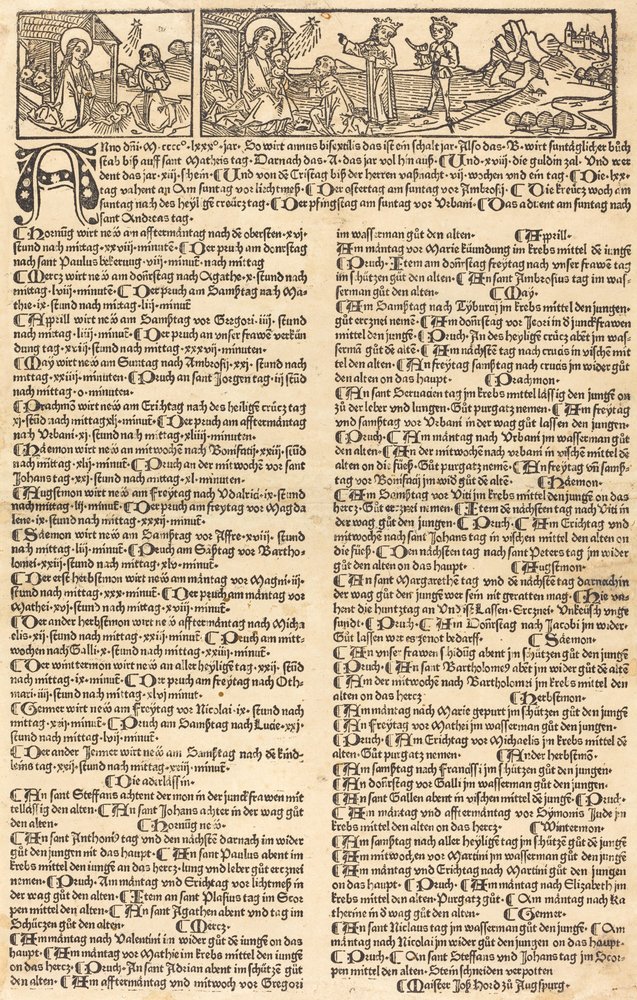 ANno dñi·M·cccc°·lxxx°·jar· So wirt annus bisextilis das ist ein schalt jar· Also das·B· wirt suntäglicher bůch
stab biß auff sant Matheis tag· Darnach das·A·das jar vol hin auß· Und·xviij·die guldin zal· Und wer
dent das jar·xij·shein· Und von dē Cristag biß der herren vaßnacht·vij·wochen und ein tag· Die·lxx·
tag vahent an Am suntag vor liechtmeß· Der ostertag am suntag vor Ambrosij· Die kreücz woch am
suntag nach des heyl gē creücz tag· Der pfingstag am suntag vor Urbani· Das aduent am suntag nach
sant Andreas tag·
Hornūg wirt new am afftermāntag nach dē obersten·xvj·
stund nach mittag·xxviij·minutē· Der pruch am donrstag
nach sant Paulus bekerung·viij·minut·nach mittag
Mercz wirt new am donrstag nach Agathe·x·stund nach
mittag·lviij·minutē· Der pruch am Samßtag nach Ma
thie·ix·stund nach mittag·lij·minut
Apprill wirt new am Samßtag vor Gregori·iiij·stund
nach mittag·liiij·minut· Der pruch an unser frawen verkün
dung tag·xxiij·stund nach mittag·xxxvij·minuten·
May wirt new am Suntag nach Ambrosij·xxj·stund nach
mittag·xxiiij·minuten· Pruch an sant Jorgen tag·iij stūd
nach mittag·o·minuten·
Prachmon wirt new am Erichtag nach des heiligē creücz tag
xj·stūd nach mittag·xlj·minut· Der pruch am afftermāntag
nach Urbani·xj·stund nach mittag·xliiij·minuten·
Häemon wirt new an mitwochē nach Bonifacij·xxiij·stūd
nach mittag·xlj·minut· Pruch an der mitwochē vor sant
Johans tag·xxj·stund nach mittag·xl·minuten·
Augstmon wirt new am freytag nach Udalrici·ix·stund
nach mittag·lij·minut· Der pruch am freytag vor Magda
lene·ix·stund nach mittag·xxxij·minut
Säemon wirt new am Samßtag vor Affre·xviij·stund
nach mittag·lij·minut· Pruch am Säßtag vor Bartho-
lomei·xxij·stund nach mittag·xlv·minut·
Der erst herbstmon wirt new am māntag vor Magni·iij·
stund nach mittag·xxx·minut· Der pruch am māntag vor
Mathei·xvj·stund nach mittag·xviij·minut·
Der ander herbstmon wirt new afftermāntag nach Micha
elis·xij·stund nach mittag·xxiij·minut· Pruch am mitt-
wochen nach Galli·x·stund nach mittag·xxiiij·minut
Der wintermon wirt new an aller heylige tag·xxij·stūd
nach mittag·xxj·minut· Der pruch am freytag nach Oth-
mari·iij·stund nach mittag·xlvj minut·
Genner wirt new am freytag vor Nicolai·ix·stund nach
mittag·xxij·minut· Pruch am Samßtag nach Lucie·xxj
stund nach mittag·lvij·minut·
Der ander Jenner wirt new am Samßtag nach dē kind-
leins tag·xxij·stund nach mittag·xxiij·minut·
Die aderlässin·
An sant Steffans achtent der mon in der junckfrawen mit
tellässig den alten· An sant Johans achter in der wag gūt
den alten· Hornūg new·
An sant Anthonij tag und den nächstē darnach im wider
gūt den jungen nit das haupt· An sant Paulus abent im
krebs mittel den iunge an das hercz·lung und leber gūt ercznei
nemen· Pruch· Am māntag und Erichtag vor liechtmeß in
der wag gūt den alten· Item an sant Plasius tag im Scor
pen mittel den alten· An sant Agathen abent und tag im
Schüczen gūt den alten· Mercz·
Am māntag nach Valentini im wider gūt dē iunge on das
haupt· Am māntag vor Mathie im krebs mittel den iunge
on das hercz· Pruch· An sant Adrian abent im schüczē gūt
den alten· Am afftermāntag und mitwoch vor Gregori
im wasserman gūt den alten· Apprill·
Am māntag vor Marie kūmdung im krebs mittel dē iūngē
Pruch· Item am donrstag freytag nach vnser frawen tag
im schützen gūt den alten· An sant Ambrosius tag im was-
serman gūt den alten· May·
Am Samßtag nach Tyburcij im krebs mittel den jungen·
gūt ercznei nemē· Am donrstag vor Jeori in d junckfrawen
mittel den junge· Pruch· An des heylige crücz abēt im was-
sermā gūt dē altē· Am nächstē tag nach crucis im vischē mit
tel den alten· An freytag samßtag nach crucis im wider gūt
den alten on das haupt· Prachmon·
An sant Seruacien tag im krebs mittellässig den jungē on
zū der leber und lungen· Gūt purgatz nemen· Am freytag
und samßtag vor Urbani in der wag gūt lassen den jungen·
Pruch· Am māntag nach Urbani im wasserman gūt
den alten· An der mitwochē nach vrbani in vischē mittel dē
alten on di füeß· Gūt purgatz nemē· An freytag vñ samß-
tag vor Bonifacij im wid gūt dē altē· Häemon·
Am Samßtag vor Viti im krebs mittel den jungē on das
hercz· Gūt ercznei nemen· Item dē nächsten tag nach Viti in
der wag gūt den jungen· Pruch· Am Erichtag und
mitwoche nach sant Johans tag in vischen mittel den alten on
die füeß· Den nächsten tag nach sant Peters tag im wider
gūt den alten on das haupt· Augstmon·
An sant Margarethē tag und dē nächstē tag darnach in
der wag gūt den junge wer sein nit geratten mag· Hie va-
hent die hunßtag an Vnd ist Lassen· Ercznei· Vnkeüsch vnge
sundt· Pruch· Am Donrstag nach Jacobi im wider·
Gūt lassen wer es ye not bedarff· Säemon·
An vnser frawen schidūg abent im schützen gūt dē jungē
Pruch· An sant Bartholomeus abēt im wider gūt dē altē
Am der mitwochē nach Bartholomei im krebs mittel den
alten on das hercz Herbstmon·
Am māntag nach Marie gepurt im schützen gūt den jungē
An freytag vor Mathei im wasserman gūt den jungē
Pruch· Am Erichtag vor Michaelis in krebs mittel dē
alten· Gūt purgatz nemen· Ander herbstmō·
Am samßtag nach Francisci im schützen gūt den jungen·
An donrstag vor Galli im wasserman gūt den jungen·
An sant Gallen abent in vischen mittel dē jungē· Pruch·
Am māntag und afftermāntag vor Symonis Jude in
krebs mittel den alten on das hercz· Wintermon·
Am samßtag nach aller heylige tag im schützē gūt dē jungē
Am mitwochen vor Martini im wasserman gūt den jungē
Am māntag und Erichtag nach Martini gūt den jungen
on das haupt· Pruch· Am māntag nach Elizabeth im
krebs mittel den alten· Purgatz gūt· Am māntag nach Ka
therine in d wag gūt den alten· Genner·
An sant Niclaus tag im wasserman gūt den jungē· Am
māntag nach Nicolai im wider gūt den jungen on das haupt·
Pruch· An sant Steffans und Johans tag im Scor-
pen mittel den alten· Stein schneiden verpotten
Maister Joß Hord zu Augspurg·